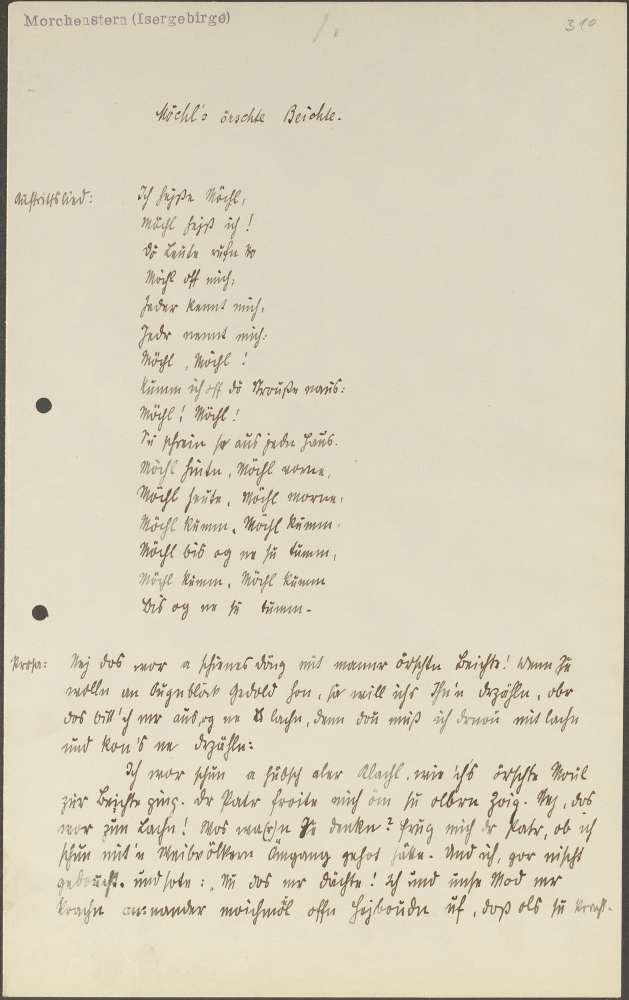 Morchenstern (Isergebirge)
1.
310
Möchl's örschte Beichte.
Auftrittslied:
Ich heiße Möchl,
Möchl heiß ich!
Dö Leute rufn
Möchl off mich,
Jeder kennt mich,
Jedr nennt mich:
Möchl, Möchl!
Kumm ich off dö Strouße naus:
Möchl! Möchl!
Su schrein se aus jedn Haus.
Möchl hintn, Möchl vorne,
Möchl heute, Möchl morne,
Möchl kumm, Möchl kumm.
Möchl bis og ne su tumm,
Möchl kumm, Möchl kumm
Bis og ne su tumm.
Prosa:
Nej dos wor a schienes Döng mit manner örschtn Beichte! Wenn Se
wolln an Augnblöck Gedold hon, sa will ichs Ihn'n drzähln, obr
dos bitt'ch mr aus, og ne lachn, denn dou muß ich drnou mitlachn
und kon's ne drzähln:
Ich wor schun a hübsch aler Klachl, wie 'ch's örschte Moul
zur Beichte ging. Dr Patr froite mich öm su olbrn Zoig. Nej, dos
wor zun Lachn! Wos wa(r)n Se denkn? Frug mich dr Patr, ob ich
schun mit'n Weibvölkern Umgang gehot hätte. Und ich, gor nischt
gedoucht, und sote: „Nu dos mr döchte! Ich und unse Mod mr
krachn anander moichmöl offn Hejboudn uf, doß ols su kracht.